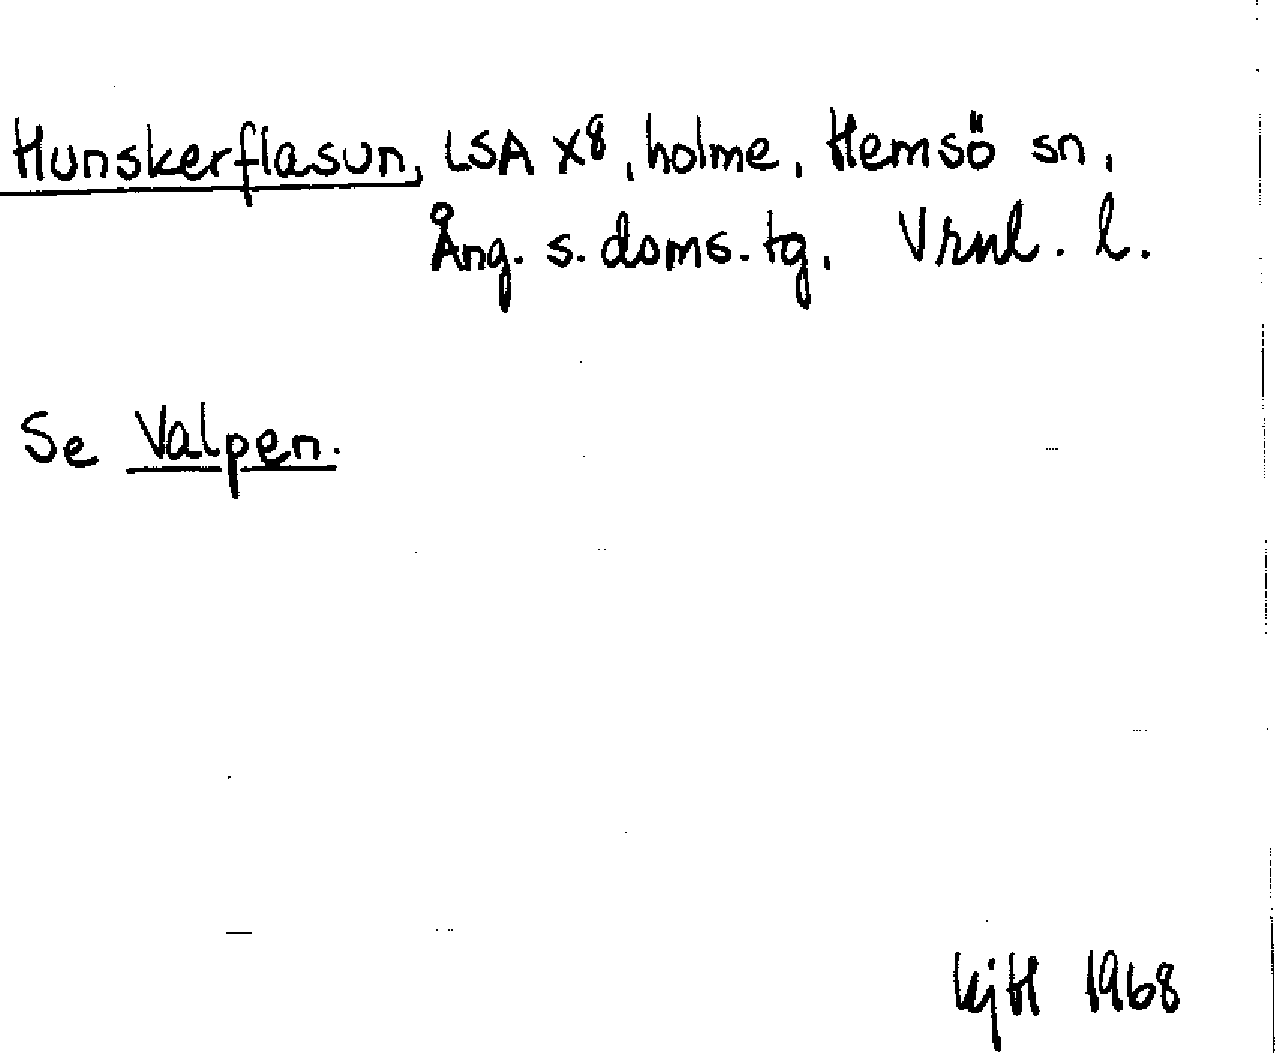 Hunskerflasun, LSA X8, holme, Hemsö sn,
Ång. s. doms. tg, Vrnl. l.
Se Valpen.
1968